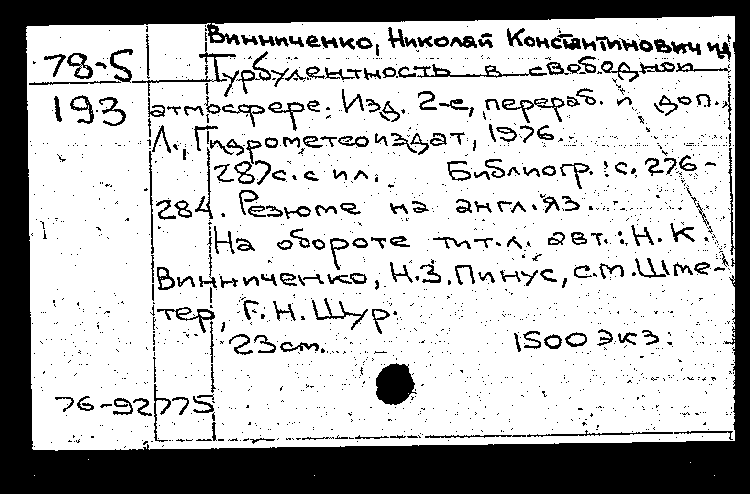 Винниченко, Николай Константинович и др
78-5 Турбулентность в свободной
193 атмосфере. Изд. 2-е, перераб. и доп.,
Л., Гидрометеоиздат, 1976.
287с. с ил. Библиогр.: с. 276-
284. Резюме на англ. яз.
На обороте тит. л. авт.: Н. К.
Винниченко, Н. З. Пинус, С. М. Шме-
тер, Г. Н. Шур.
23 см. 1500 экз.
76-92775